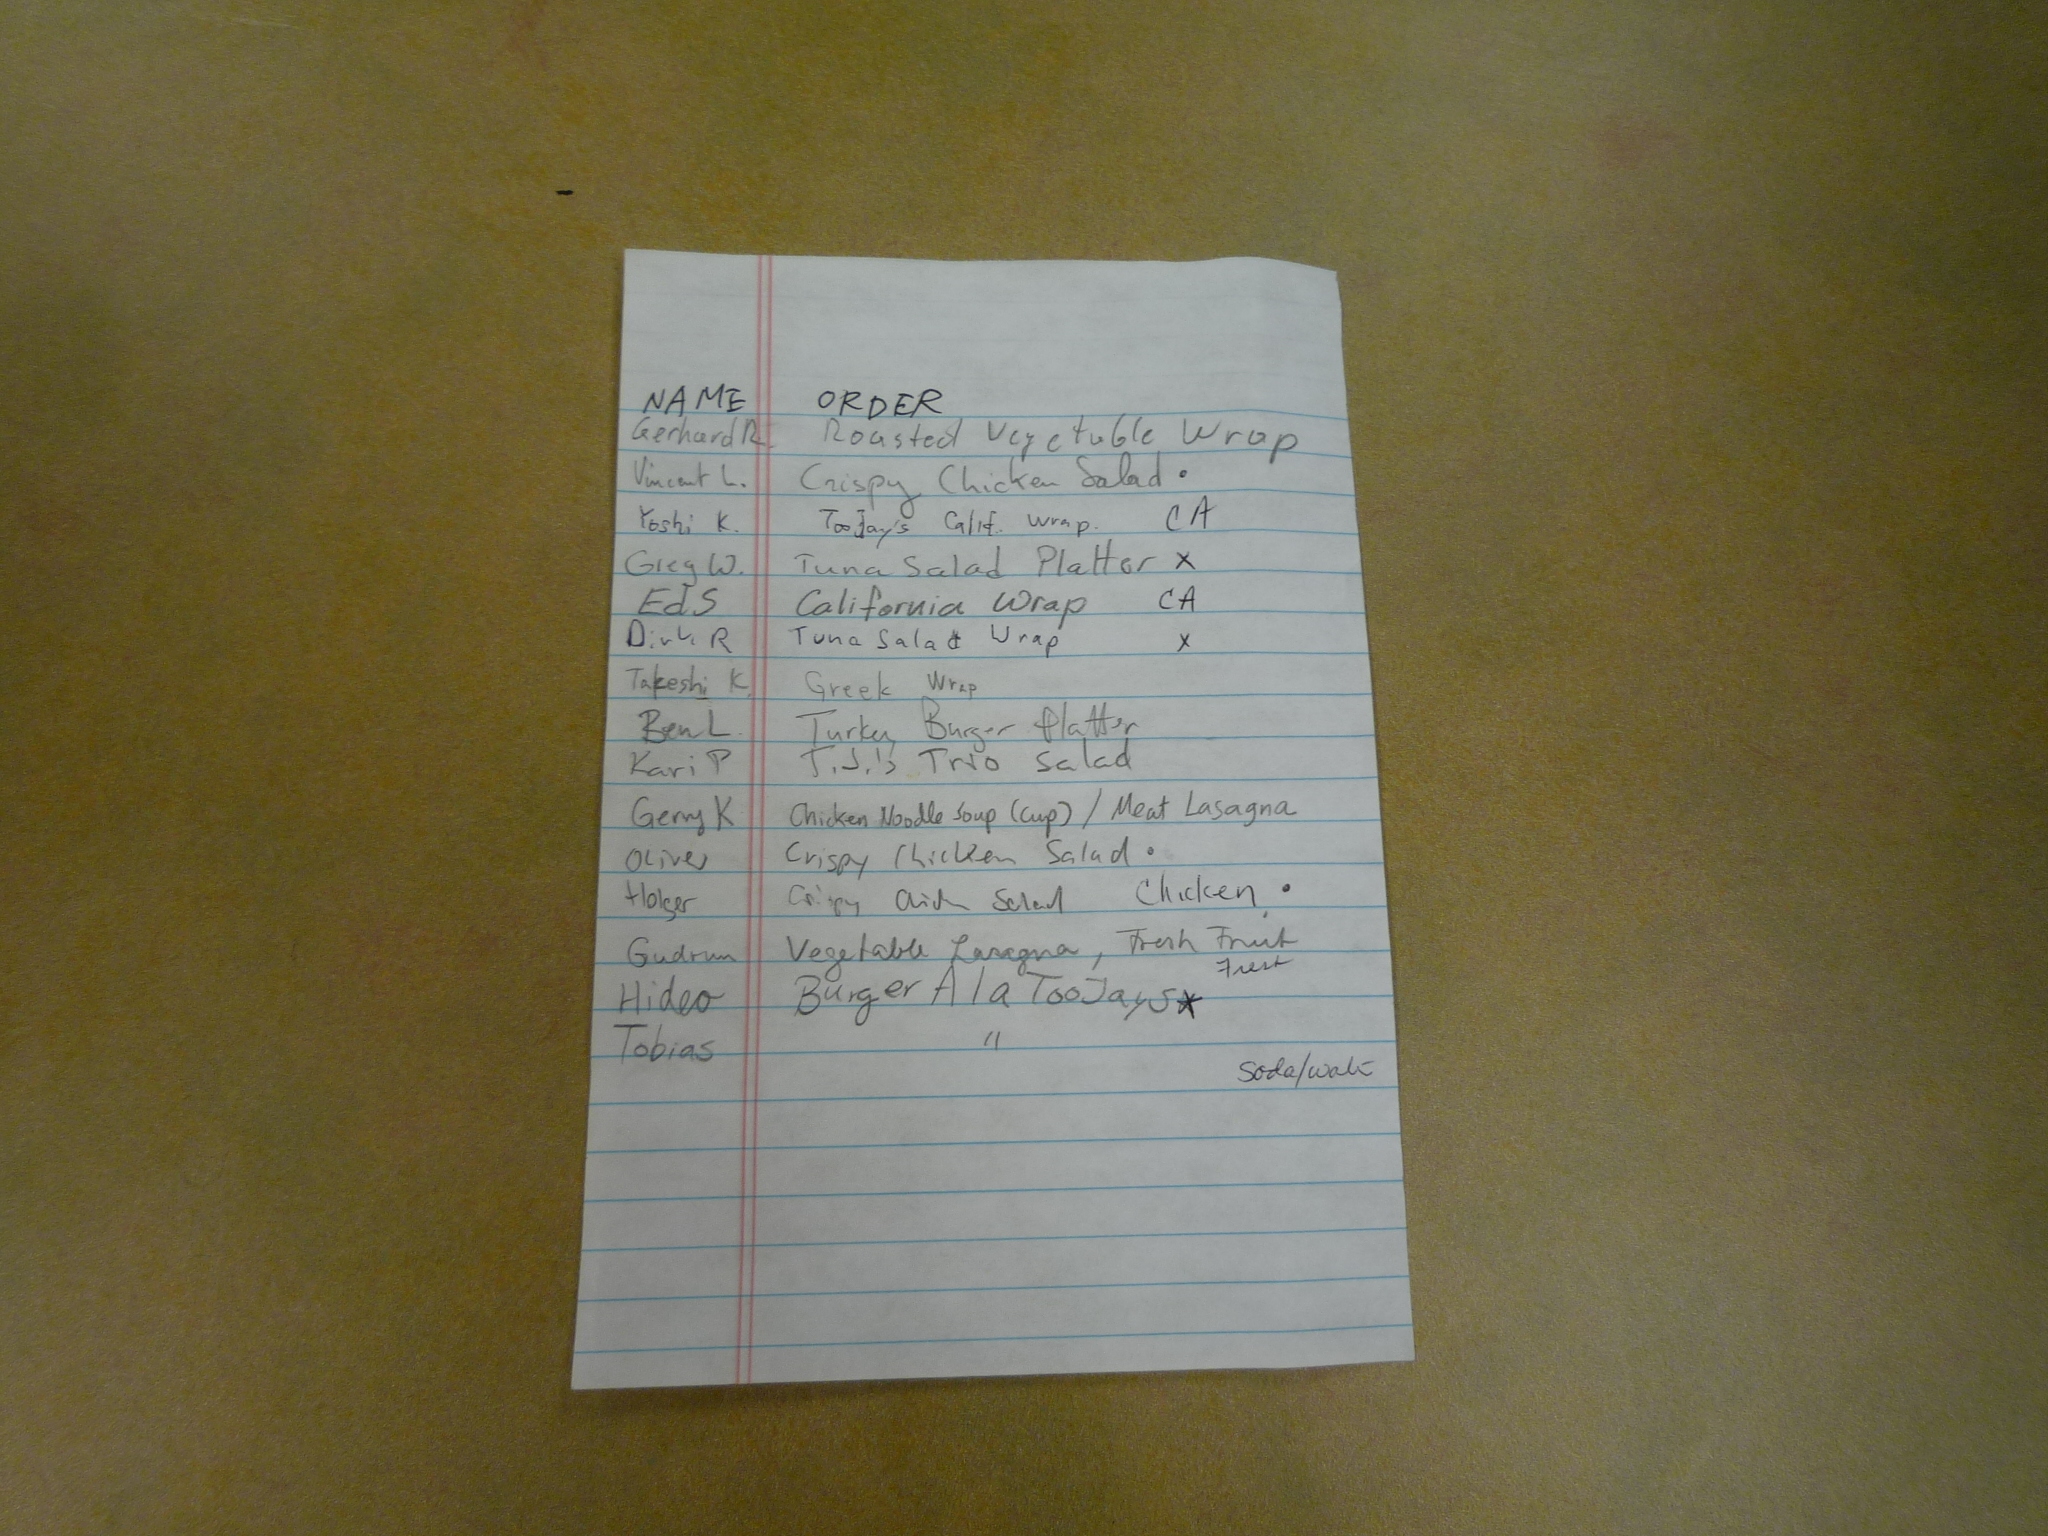 NAME ORDER
Gerhard R. Roasted Vegetable Wrap
Vincent L. Crispy Chicken Salad •
Yoshi K. TooJay's Calif. Wrap. CA
Greg W. Tuna Salad Platter x
Ed S California Wrap CA
Dirk R Tuna Salad Wrap x
Takeshi K. Greek Wrap
Ben L. Turkey Burger Platter
Kari P T.J.'s Trio Salad
Gerry K Chicken Noodle Soup (cup) / Meat Lasagna
Oliver Crispy Chicken Salad •
Holger Crispy Salad Chicken •
Gudrun Vegetable Lasagna, Fresh Fruit
Hideo Burger A la TooJays *
Tobias "
Soda/